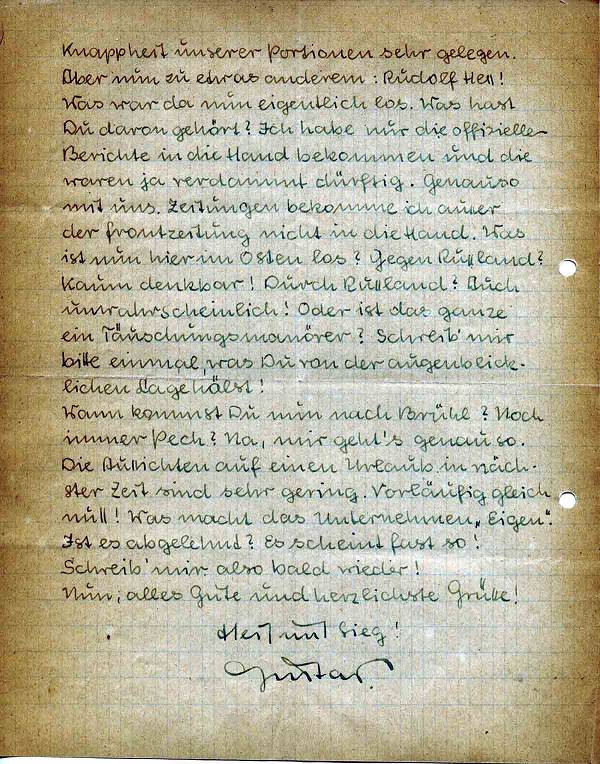 Knappheit unserer Portionen sehr gelegen.
Aber nun zu etwas anderem: Rudolf Heß!
Was war da nun eigentlich los. Was hast
Du davon gehört? Ich habe nur die offizielle
Berichte in die Hand bekommen und die
waren ja verdammt dürftig. Genauso
mit uns. Zeitungen bekomme ich außer
der Frontzeitung nicht in die Hand. Was
ist nun hier im Osten los? Gegen Rußland?
Kaum denkbar! Durch Rußland? Auch
unwahrscheinlich! Oder ist das ganze
ein Täuschungsmanöver? Schreib' mir
bitte einmal, was Du von der augenblick-
lichen Lage hälst!
Wann kommst Du nun nach Brühl? Noch
immer Pech? Na, mir geht's genauso.
Die Außichten auf einen Urlaub in näch-
ster Zeit sind sehr gering. Vorläufig gleich
null! Was macht das Unternehmen „Eigen".
Ist es abgelehnt? Es scheint fast so!
Schreib' mir also bald wieder!
Nun, alles Gute und herzlichste Grüße!
Heil und Sieg!
Gustav.